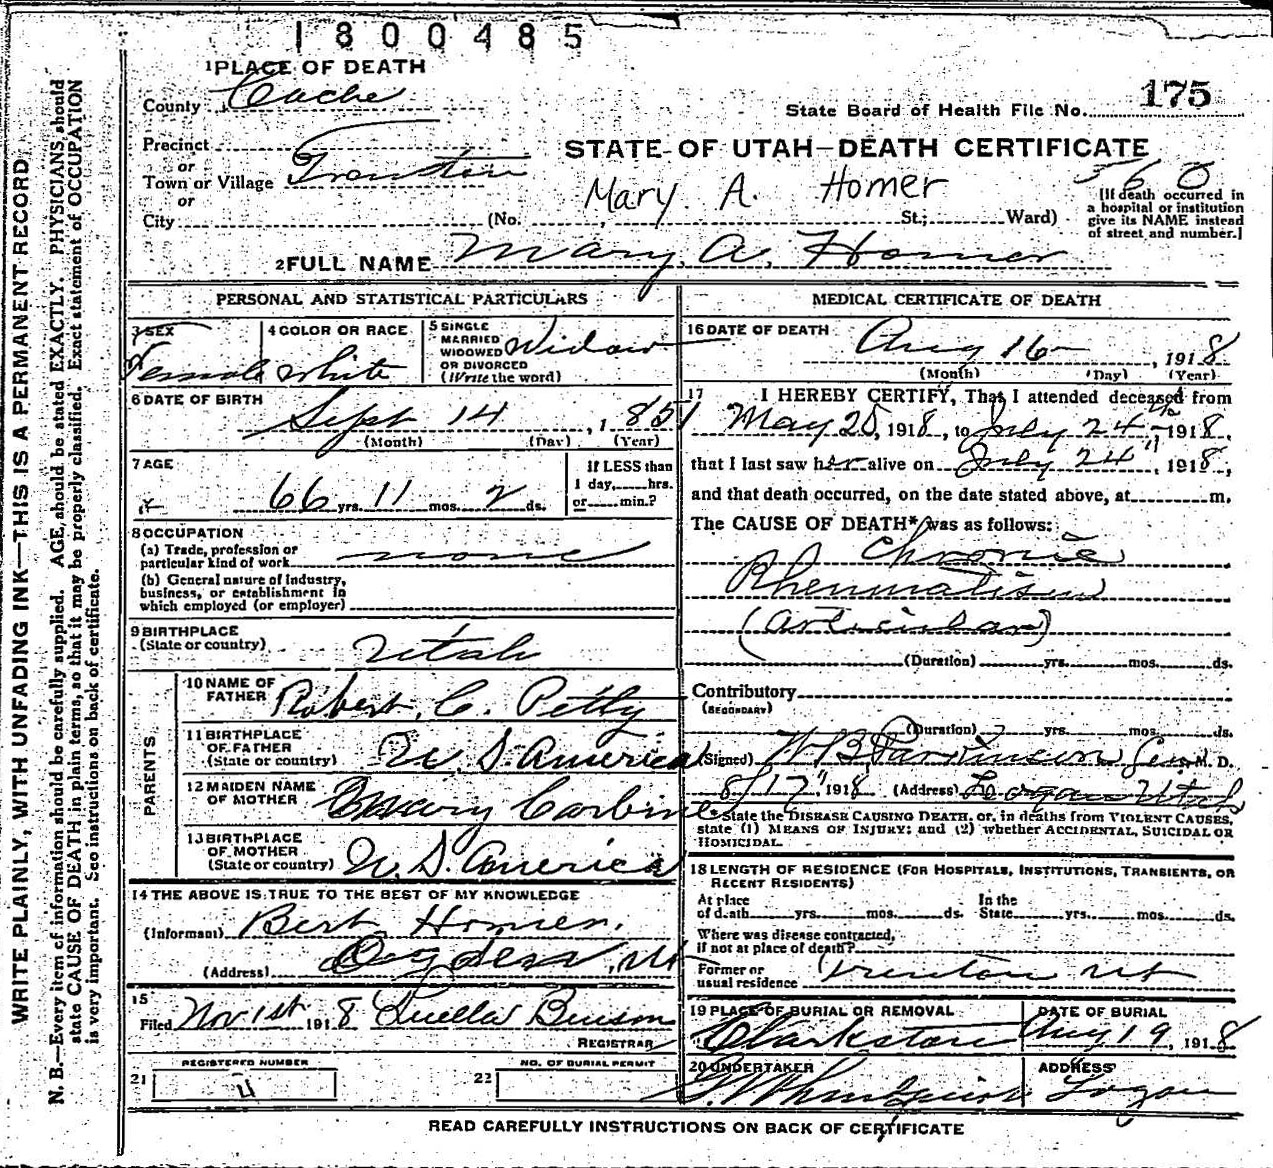 1800485
1 PLACE OF DEATH
County Cache
State Board of Health File No. 175
Precinct
or
Town or Village Trenton
or
City (No. St.; Ward)
STATE OF UTAH—DEATH CERTIFICATE
Mary A. Homer
560
[If death occurred in
a hospital or institution
give its NAME instead
of street and number.]
2 FULL NAME Mary A. Homer
PERSONAL AND STATISTICAL PARTICULARS
3 SEX
Female
4 COLOR OR RACE
White
5 SINGLE
MARRIED
WIDOWED
OR DIVORCED
(Write the word)
Widow
6 DATE OF BIRTH
Sept 14, 1851
(Month) (Day) (Year)
7 AGE
66 yrs. 11 mos. 2 ds.
If LESS than
1 day, hrs.
or min.?
8 OCCUPATION
(a) Trade, profession or
particular kind of work none
(b) General nature of Industry,
business, or establishment in
which employed (or employer)
9 BIRTHPLACE
(State or country) Utah
PARENTS
10 NAME OF
FATHER Robert C. Petty
11 BIRTHPLACE
OF FATHER
(State or country) U. S. America
12 MAIDEN NAME
OF MOTHER Mary Carbine
13 BIRTHPLACE
OF MOTHER
(State or country) U. S. America
14 THE ABOVE IS TRUE TO THE BEST OF MY KNOWLEDGE
(Informant) Bert Homer,
(Address) Ogden, Ut
15
Filed Nov 1st 1918 Luella Benson
REGISTRAR
REGISTERED NUMBER
21 4
NO. OF BURIAL PERMIT
22
MEDICAL CERTIFICATE OF DEATH
16 DATE OF DEATH
Aug 16, 1918
(Month) (Day) (Year)
17 I HEREBY CERTIFY, That I attended deceased from
May 25, 1918, to July 24th, 1918,
that I last saw her alive on July 24", 1918,
and that death occurred, on the date stated above, at m.
The CAUSE OF DEATH* was as follows:
Chronic
Rheumatism
(Articular)
(Duration) yrs. mos. ds.
Contributory
(SECONDARY)
(Duration) yrs. mos. ds.
(Signed) W B Parkinson Sen M. D.
8/17", 1918 (Address) Logan Utah
*State the DISEASE CAUSING DEATH, or, in deaths from VIOLENT CAUSES,
state (1) MEANS OF INJURY; and (2) whether ACCIDENTAL, SUICIDAL OR
HOMICIDAL.
18 LENGTH OF RESIDENCE (FOR HOSPITALS, INSTITUTIONS, TRANSIENTS, OR
RECENT RESIDENTS)
At place
of death yrs. mos. ds.
In the
State yrs. mos. ds.
Where was disease contracted,
if not at place of death?
Former or
usual residence Trenton Ut
19 PLACE OF BURIAL OR REMOVAL
Clarkston
DATE OF BURIAL
Aug 19, 1918
20 UNDERTAKER
ADDRESS
Logan
READ CAREFULLY INSTRUCTIONS ON BACK OF CERTIFICATE
WRITE PLAINLY, WITH UNFADING INK—THIS IS A PERMANENT RECORD
N. B.—Every item of information should be carefully supplied. AGE, should be stated EXACTLY. PHYSICIANS should
state CAUSE OF DEATH in plain terms, so that it may be properly classified. Exact statement of OCCUPATION
is very important. See instructions on back of certificate.